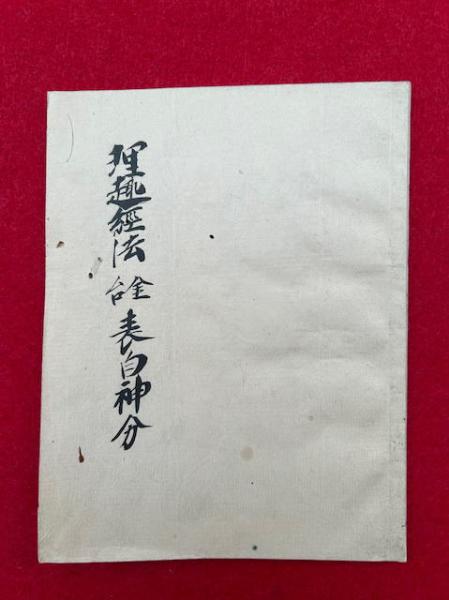 理趣經法 金台 表白神分